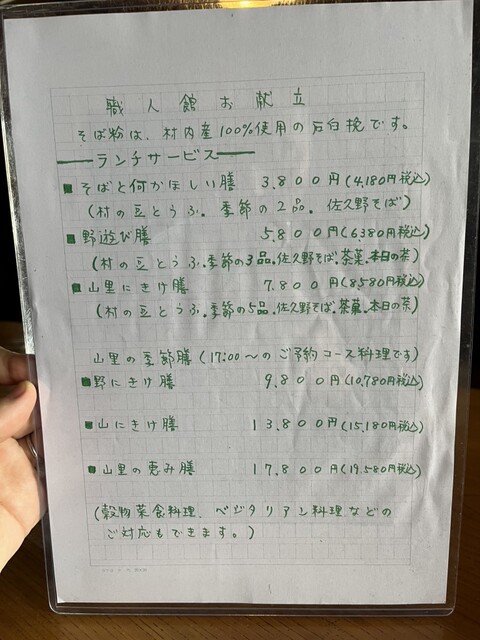 職人館お献立
そば粉は、村内産100%使用の石臼挽です。
ランチサービス
■そばと何かほしい膳 3.800円(4,180円税込)
(村の豆とうふ。季節の2品。佐久野そば)
■野遊び膳 5.800円(6,380円税込)
(村の豆とうふ.季節の3品.佐久野そば.茶菓.本日の茶)
■山里にきけ膳 7.800円(8,580円税込)
(村の豆とうふ.季節の5品.佐久野そば.茶菓.本日の茶)
山里の季節膳(17:00〜のご予約コース料理です)
■野にきけ膳 9.800円(10,780円税込)
■山にきけ膳 13.800円(15,180円税込)
■山里の恵み膳 17.800円(19,580円税込)
(穀物菜食料理、ベジタリアン料理などの
ご対応もできます。)